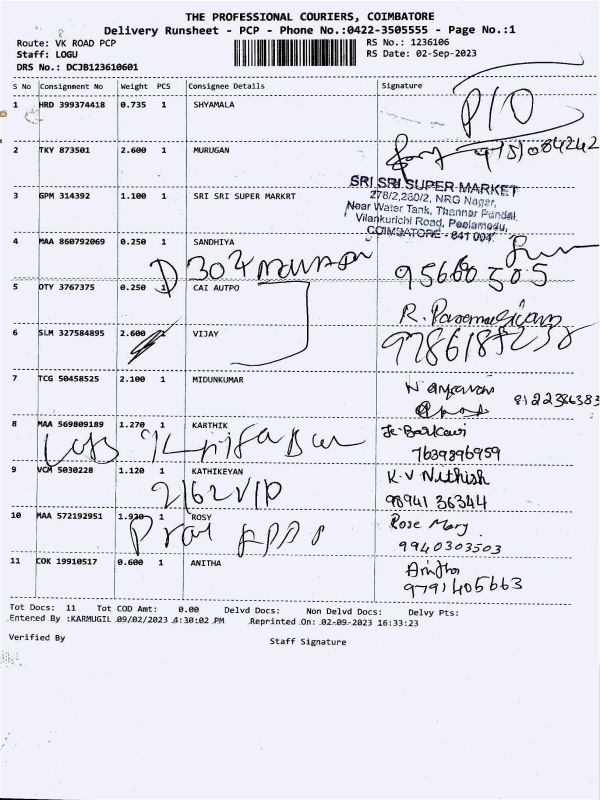 THE PROFESSIONAL COURIERS, COIMBATORE
Delivery Runsheet - PCP - Phone No.:0422-3505555 - Page No.:1
Route: VK ROAD PCP RS No.: 1236106
Staff: LOGU RS Date: 02-Sep-2023
DRS No.: DCJB123610601
S No Consignment No Weight PCS Consignee Details Signature
1 HRD 399374418 0.735 1 SHYAMALA P/O
2 TKY 873501 2.600 1 MURUGAN 9751084242
3 GPM 314392 1.100 1 SRI SRI SUPER MARKRT
SRI SRI SUPER MARKET
278/2,280/2, NRG Nagar,
Near Water Tank, Thanner Pandal
Vilankurichi Road, Peelamedu,
COIMBATORE - 641 004
4 MAA 860792069 0.250 1 SANDHIYA
5 DTY 3767375 0.250 1 CAI AUTPO
6 SLM 327584895 2.600 VIJAY
7 TCG 50458525 2.100 1 MIDUNKUMAR
8 MAA 569809189 1.270 1 KARTHIK
7639896959
9 VCM 5030228 1.120 1 KATHIKEYAN K.V Nithish
98941 36344
10 MAA 572192951 1.920 1 ROSY Rose Mary
9940303503
11 COK 19910517 0.600 1 ANITHA Anitha
9791405663
Tot Docs: 11 Tot COD Amt: 0.00 Delvd Docs: Non Delvd Docs: Delvy Pts:
Entered By :KARMUGIL 09/02/2023 4:30:02 PM Reprinted On: 02-09-2023 16:33:23
Verified By Staff Signature